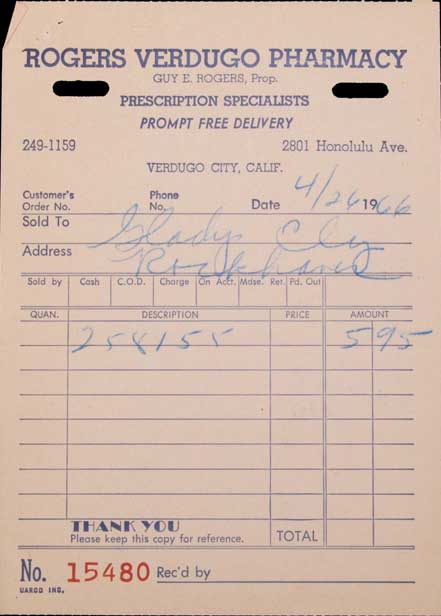 ROGERS VERDUGO PHARMACY
GUY E. ROGERS, Prop.
PRESCRIPTION SPECIALISTS
PROMPT FREE DELIVERY
249-1159 2801 Honolulu Ave.
VERDUGO CITY, CALIF.
Customer's Order No. Phone No. Date 4/26 1966
Sold To Gladys Ely
Address Rockhaven
Sold by Cash C.O.D. Charge On Acct. Mdse. Ret. Pd. Out
QUAN. DESCRIPTION PRICE AMOUNT
258155 5 95
THANK YOU
Please keep this copy for reference. TOTAL
No. 15480 Rec'd by
UARCO INC.